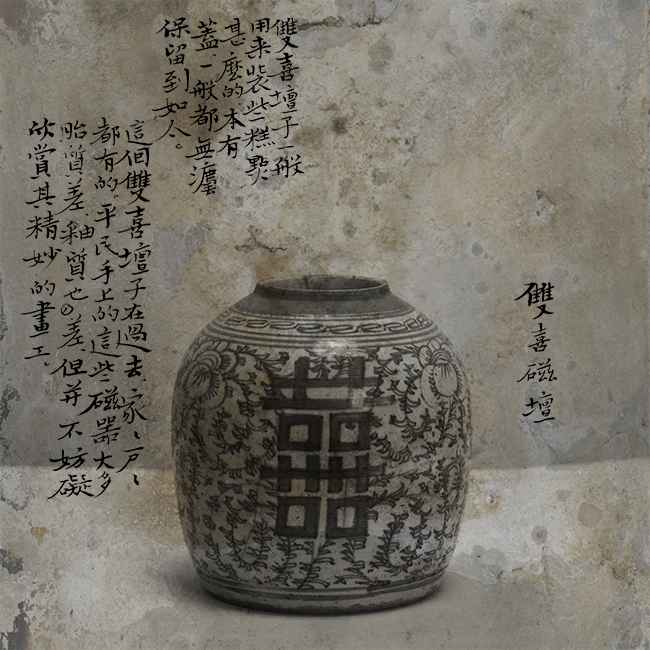 雙喜磁壇
雙喜壇子一般
用来裝些糕點
甚麼的本有
蓋一般都無灋
保留到如今。
這個雙喜壇子在過去家〻戶〻
都有的,平民手上的這些磁器大多
胎質差,釉質也差,但并不妨礙
欣賞其精妙的畫工、
囍